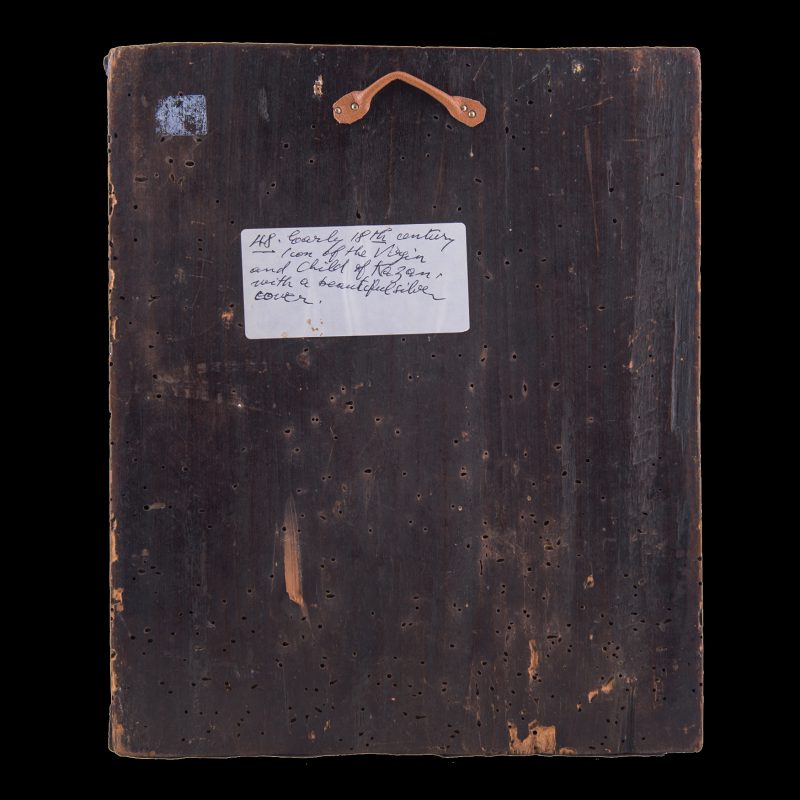 48. Early 18th century
Icon of the Virgin
and Child of Kazan.
with a beautiful silver
cover.